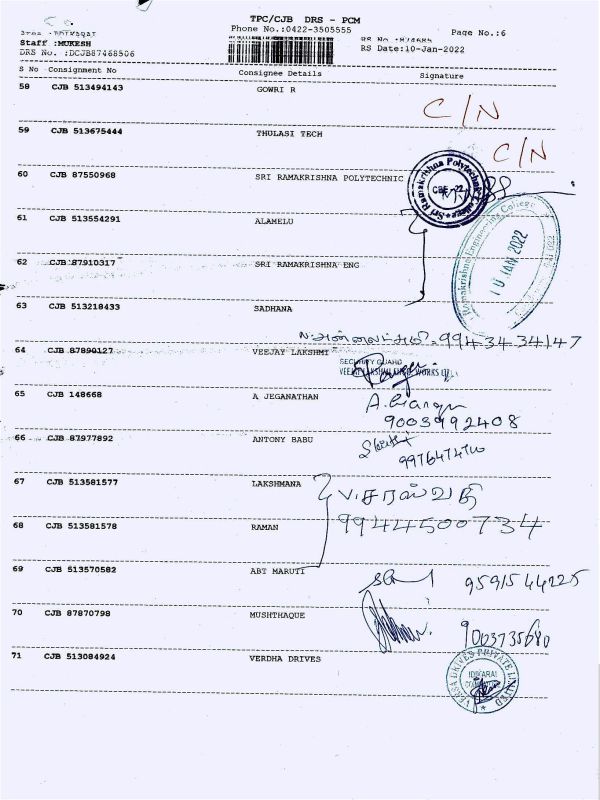 TPC/CJB DRS - PCM
Phone No.:0422-3505555
Page No.:6
Staff :MUKESH
RS Date:10-Jan-2022
DRS No. :DCJB87468506
S No Consignment No Consignee Details Signature
58 CJB 513494143 GOWRI R
C/N
59 CJB 513675444 THULASI TECH
C/N
60 CJB 87550968 SRI RAMAKRISHNA POLYTECHNIC
Sri Ramakrishna Polytechnic
CBE-22
61 CJB 513554291 ALAMELU
Ramakrishna Engineering College
10 JAN 2022
62 CJB 87910317 SRI RAMAKRISHNA ENG
63 CJB 513218433 SADHANA
9943434147
64 CJB 87890127 VEEJAY LAKSHMI
SECURITY GUARD
65 CJB 148668 A JEGANATHAN
9003992408
66 CJB 87977892 ANTONY BABU
67 CJB 513581577 LAKSHMANA
V.சரஸ்வதி
9944500734
68 CJB 513581578 RAMAN
69 CJB 513570582 ABT MARUTI
9591544225
70 CJB 87870798 MUSHTHAQUE
9003735680
71 CJB 513084924 VERDHA DRIVES
VERSA DRIVES PRIVATE LIMITED